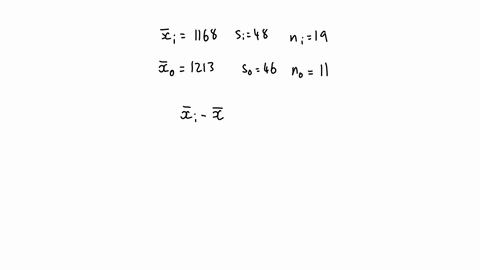 x̄ᵢ = 1168 sᵢ = 48 nᵢ = 19
x̄₀ = 1213 s₀ = 46 n₀ = 11
x̄ᵢ - x̄